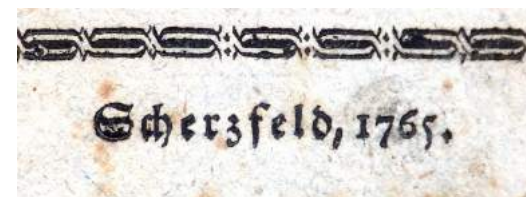 Scherzfeld, 1765.